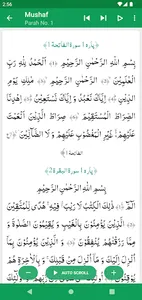 2:56
Mushaf
Parah No. 1
﴿ پارہ ١ سورة الفاتحة ١ ﴾
بِسْمِ اللّٰهِ الرَّحْمٰنِ الرَّحِيْمِ ﴿١﴾ اَلْحَمْدُ لِلّٰهِ رَبِّ
الْعٰلَمِيْنَ ﴿٢﴾ الرَّحْمٰنِ الرَّحِيْمِ ﴿٣﴾ مٰلِكِ يَوْمِ
الدِّيْنِ ﴿٤﴾ اِيَّاكَ نَعْبُدُ وَ اِيَّاكَ نَسْتَعِيْنُ ﴿٥﴾ اِهْدِنَا
الصِّرَاطَ الْمُسْتَقِيْمَ ﴿٦﴾ صِرَاطَ الَّذِيْنَ اَنْعَمْتَ
عَلَيْهِمْ ۙ غَيْرِ الْمَغْضُوْبِ عَلَيْهِمْ وَ لَا الضَّآلِّيْنَ ﴿٧﴾
الفاتحة ١
﴿ پارہ ١ سورة البقرة ٢ ﴾
بِسْمِ اللّٰهِ الرَّحْمٰنِ الرَّحِيْمِ
الٓمّٓ ﴿١﴾ ذٰلِكَ الْكِتٰبُ لَا رَيْبَ ۛ فِيْهِ ۛ هُدًى لِّلْمُتَّقِيْنَ
﴿٢﴾ الَّذِيْنَ يُؤْمِنُوْنَ بِالْغَيْبِ وَ يُقِيْمُوْنَ الصَّلٰوةَ وَ
مِمَّا رَزَقْنٰهُمْ يُنْفِقُوْنَ ﴿٣﴾ وَ الَّذِيْنَ يُؤْمِنُوْنَ بِمَاۤ
اُنْزِلَ اِلَيْكَ وَ مَاۤ اُنْزِلَ مِنْ قَبْلِكَ ۚ وَ بِالْاٰخِرَةِ هُمْ
AUTO SCROLL